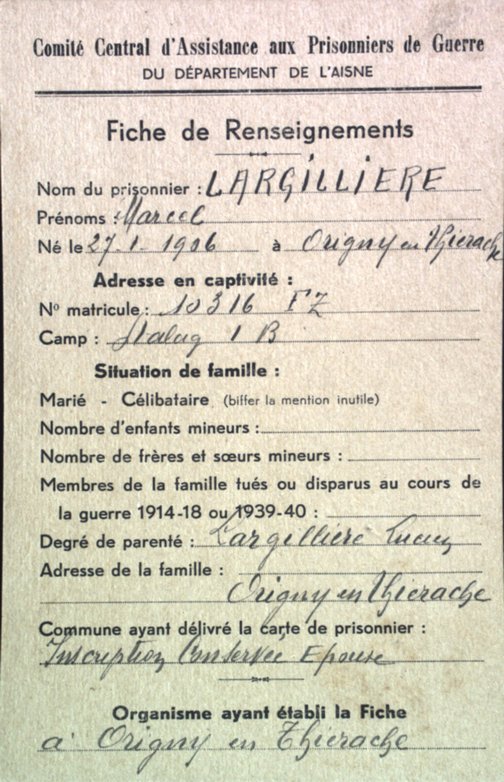 Comité Central d'Assistance aux Prisonniers de Guerre
DU DÉPARTEMENT DE L'AISNE
Fiche de Renseignements
Nom du prisonnier : LARGILLIERE
Prénoms : Marcel
Né le 27.1.1906 à Origny en Thierache
Adresse en captivité :
No matricule : 10316 FZ
Camp : Stalag 1 B
Situation de famille :
Marié - Célibataire (biffer la mention inutile)
Nombre d'enfants mineurs :
Nombre de frères et sœurs mineurs :
Membres de la famille tués ou disparus au cours de
la guerre 1914-18 ou 1939-40 :
Degré de parenté : Largilliere
Adresse de la famille :
Origny en Thierache
Commune ayant délivré la carte de prisonnier :
Inscription Conservée Epouse
Organisme ayant établi la Fiche
à Origny en Thierache